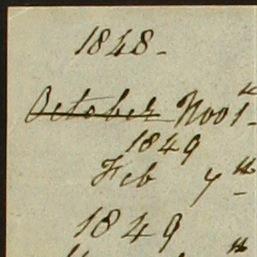 1848-
~~October~~ Nov 1"
1849
Feb 7th
1849